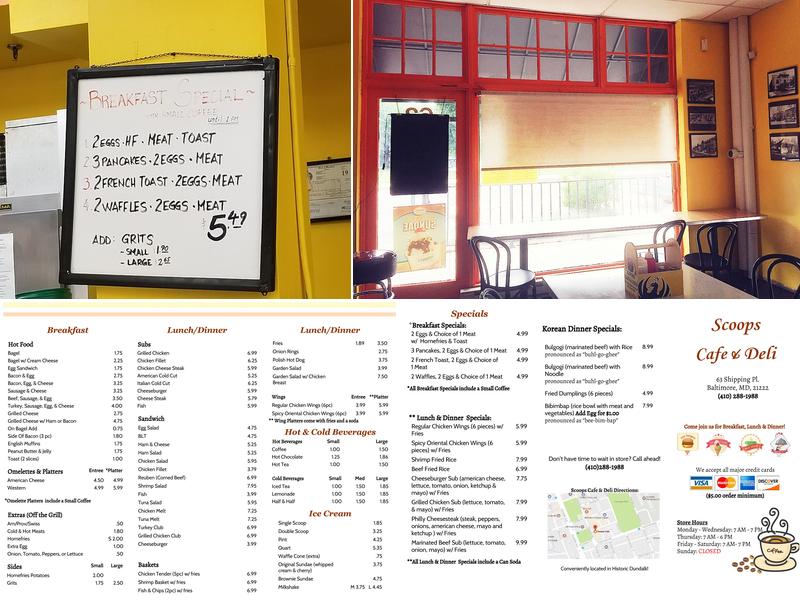 ~BREAKFAST SPECIAL~
SMALL COFFEE
until 1 PM
1. 2 EGGS · HF · MEAT · TOAST
2. 3 PANCAKES · 2 EGGS · MEAT
3. 2 FRENCH TOAST · 2 EGGS · MEAT
4. 2 WAFFLES · 2 EGGS · MEAT
$5.49
ADD: GRITS
- SMALL 1.90
- LARGE
SUNDAE
Breakfast
Hot Food
Bagel 1.75
Bagel w/ Cream Cheese 2.25
Egg Sandwich 1.75
Bacon & Egg 2.75
Bacon, Egg, & Cheese 3.25
Sausage & Cheese 3.25
Beef, Sausage, & Egg 3.50
Turkey, Sausage, Egg, & Cheese 4.00
Grilled Cheese 2.75
Grilled Cheese w/ Ham or Bacon 4.75
On Bagel Add 0.75
Side Of Bacon (3 pc) 1.80
English Muffins 1.75
Peanut Butter & Jelly 1.75
Toast (2 slices) 1.00
Omelettes & Platters Entree *Platter
American Cheese 4.50 5.50
Western 4.99 5.99
*Omelette Platters include a Small Coffee
Extras (Off the Grill)
Am/Prov/Swiss .50
Cold & Hot Meats 1.80
Homefries $ 2.00
Extra Egg 1.00
Onion, Tomato, Peppers, or Lettuce .50
Sides Small Large
Homefries Potatoes 2.00
Grits 1.75 2.50
Lunch/Dinner
Subs
Grilled Chicken 6.99
Chicken Fillet 6.25
Chicken Cheese Steak 5.99
American Cold Cut 5.25
Italian Cold Cut 6.25
Cheeseburger 5.99
Cheese Steak 5.79
Fish 5.99
Sandwich
Grilled Chicken 4.75
Egg Salad 4.75
BLT 4.75
Ham & Cheese 5.25
Ham Salad 5.25
Chicken Salad 5.95
Chicken Fillet 3.79
Reuben (Corned Beef) 6.99
Shrimp Salad 7.95
Fish 3.99
Tuna Salad 5.25
Chicken Melt 7.25
Tuna Melt 7.25
Turkey Club 6.99
Grilled Chicken Club 6.99
Cheeseburger 3.99
Baskets
Chicken Tender (5pc) w/ fries 6.99
Shrimp Basket w/ fries 6.99
Fish & Chips (2pc) w/ fries 6.99
Lunch/Dinner
Fries 1.89 3.50
Onion Rings 2.75
Polish Hot Dog 3.75
Garden Salad 3.99
Garden Salad w/ Chicken Breast 7.50
Wings Entree **Platter
Regular Chicken Wings (6pc) 3.99 5.99
Spicy Oriental Chicken Wings (6pc) 3.99 5.99
** Wing Platters come with fries and a soda
Hot & Cold Beverages
Hot Beverages Small Large
Coffee 1.00 1.50
Hot Chocolate 1.25 1.86
Hot Tea 1.00 1.50
Cold Beverages Small Med Large
Iced Tea 1.00 1.50 1.85
Lemonade 1.00 1.50 1.85
Half & Half 1.00 1.50 1.85
Ice Cream
Single Scoop 1.85
Double Scoop 3.25
Pint 4.25
Quart 5.35
Waffle Cone (extra) .75
Original Sundae (whipped cream & cherry) 3.75
Brownie Sundae 4.75
Milkshake M 3.75 L 4.45
Specials
*Breakfast Specials:
2 Eggs & Choice of 1 Meat 4.99
w/ Homefries & Toast
3 Pancakes, 2 Eggs & Choice of 1 Meat 4.99
2 French Toast, 2 Eggs & Choice of 4.99
1 Meat
2 Waffles, 2 Eggs & Choice of 1 Meat 4.99
*All Breakfast Specials include a Small Coffee
** Lunch & Dinner Specials:
Regular Chicken Wings (6 pieces) w/ 5.99
Fries
Spicy Oriental Chicken Wings (6 5.99
pieces) w/ Fries
Shrimp Fried Rice 7.99
Beef Fried Rice 6.99
Cheeseburger Sub (american cheese, 7.75
lettuce, tomato, onion, ketchup &
mayo) w/ Fries
Grilled Chicken Sub (lettuce, tomato, 7.99
& mayo) w/ Fries
Philly Cheesesteak (steak, peppers, 7.99
onions, american cheese, mayo and
ketchup ) w/ Fries
Marinated Beef Sub (lettuce, tomato, 9.99
onion, mayo) w/ Fries
**All Lunch & Dinner Specials include a Can Soda
Korean Dinner Specials:
Bulgogi (marinated beef) with Rice 8.99
pronounced as "buhl-go-ghee"
Bulgogi (marinated beef) with 8.99
Noodle
pronounced as "buhl-go-ghee"
Fried Dumplings (6 pieces) 4.99
Bibimbap (rice bowl with meat and 7.99
vegetables) Add Egg for $1.00
pronounced as "bee-bim-bap"
Don't have time to wait in store? Call ahead!
(410)288-1988
Scoops Cafe & Deli Directions:
Conveniently located in Historic Dundalk!
Scoops
Cafe & Deli
63 Shipping Pl.
Baltimore, MD, 21222
(410) 288-1988
Come join us for Breakfast, Lunch & Dinner!
We accept all major credit cards
VISA MasterCard AMEX DISCOVER
($5.00 order minimum)
Store Hours
Monday - Wednesday: 7 AM - 7 PM
Thursday: 7 AM - 6 PM
Friday - Saturday: 7 AM- 7 PM
Sunday: CLOSED
Coffee